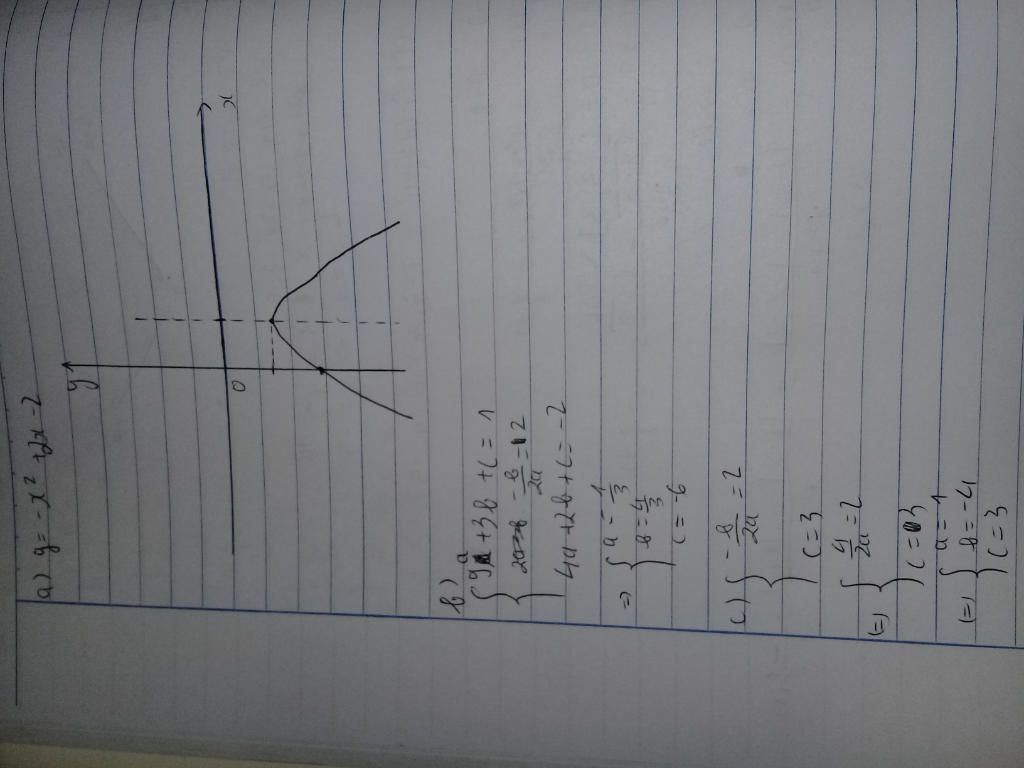 a) y = -x² + 2x - 2
y
x
0
b)
{ 9a + 3b + c = 1
-b/2a = 2
4a + 2b + c = -2
=> { a = -1/3
b = 4/3
c = -6
c) { -b/2a = 2
c = 3
(=) { 4/2a = 2
c = 3
(=) { a = 1
b = -4
c = 3